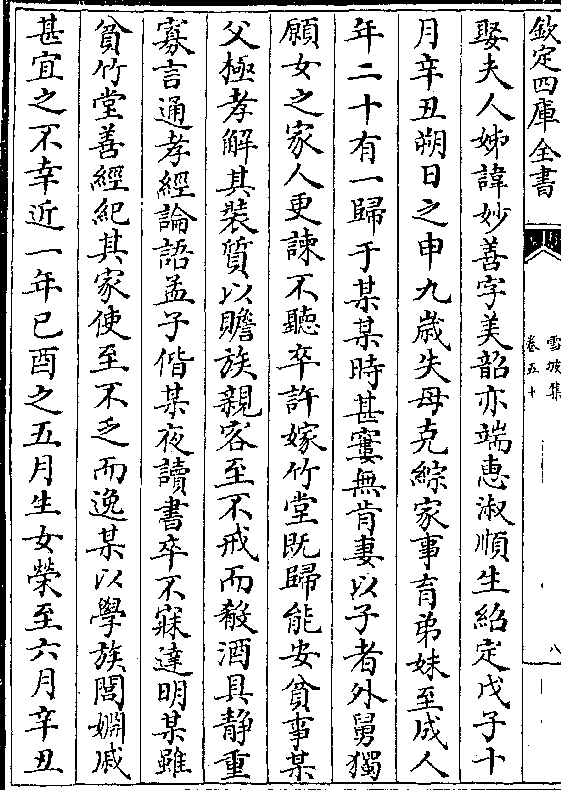 欽定四庫全書
雪坡集
卷五十
八
娶夫人姊諱妙善字美韶亦端惠淑順生紹定戊子十
月辛丑朔日之申九歲失母克綜家事育弟妹至成人
年二十有一歸于某某時甚窶無肯妻以子者外舅獨
願女之家人更諫不聽卒許嫁竹堂既歸能安貧事某
父極孝解其裝質以贍族親客至不戒而殽酒具靜重
寡言通孝經論語孟子偕某夜讀書卒不寐達明某雖
貧竹堂善經紀其家使至不乏而逸某以學族閭婣戚
甚宜之不幸近一年已酉之五月生女榮至六月辛丑